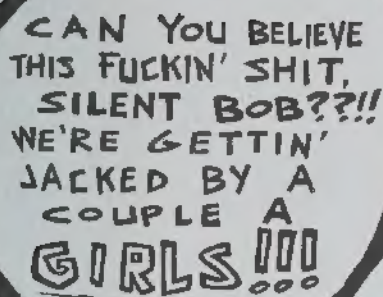 CAN YOU BELIEVE
THIS FUCKIN' SHIT,
SILENT BOB??!!
WE'RE GETTIN'
JACKED BY A
COUPLE A
GIRLS!!!